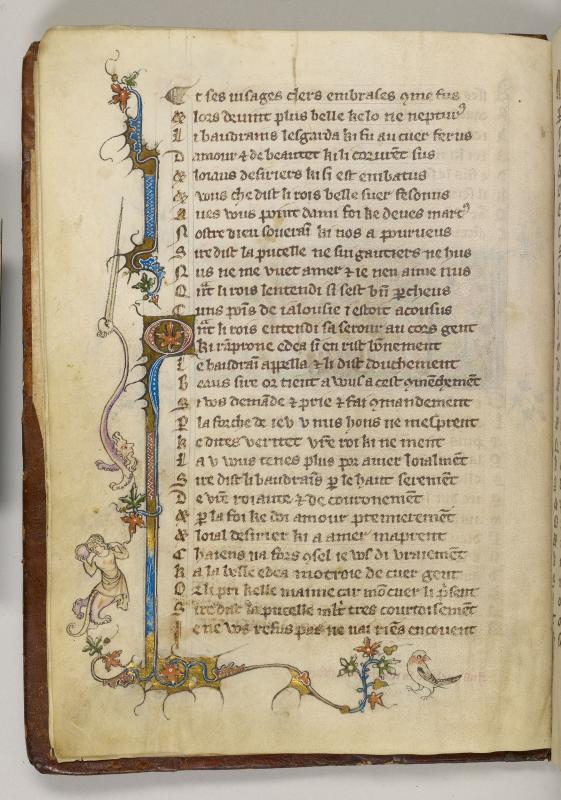 Et ses uisages clers enbrases 9me fus
& lors deuint plus belle kelo ne neptun9
Li baudrains lesgarda ki fu au cuer ferus
Damour & de beautet ki li coruret sus
& loiaus desiriers ki si est enbatus
& wus che dist li rois belle suer fesonus
Aues wus point dami foi ke deues
Nostre dieu souerai ki nos a pourueus
Sire dist la pucelle ne sui gautiers ne hus
Nus ne me vuet amer & ie nen aime nus
Qnt li rois lentendi si sest bn percheus
Cuns poins de ialousie lestoit acousus
Qnt li rois entendi sa serour au cors gent
ki ramprone edea si en rist bonement
Le baudrai appella & li dist douchement
Beaus sire or tient a wus a cest 9menchement
Si ws demade & prie & fai 9mandement
Pla forche de ieu v nus hons ne mesprent
ke dites veritet vre roi ki ne ment
La v wus tenes plus por amer loialmet
Sire dist li baudrais p le haut serement
De vre roiaute & de couronemet
& p la foi ke doi amour premieremet
& loial desirier ki a amer maprent
Chaiens na fors 9sel ie ws di vraiemet
ka la belle edea motroie de cuer gent
& li pri kelle maime car mo cuer li psent
Sire dist la pucelle tres courtoisement
Ie ne vos refus pas ne nai ries encouent